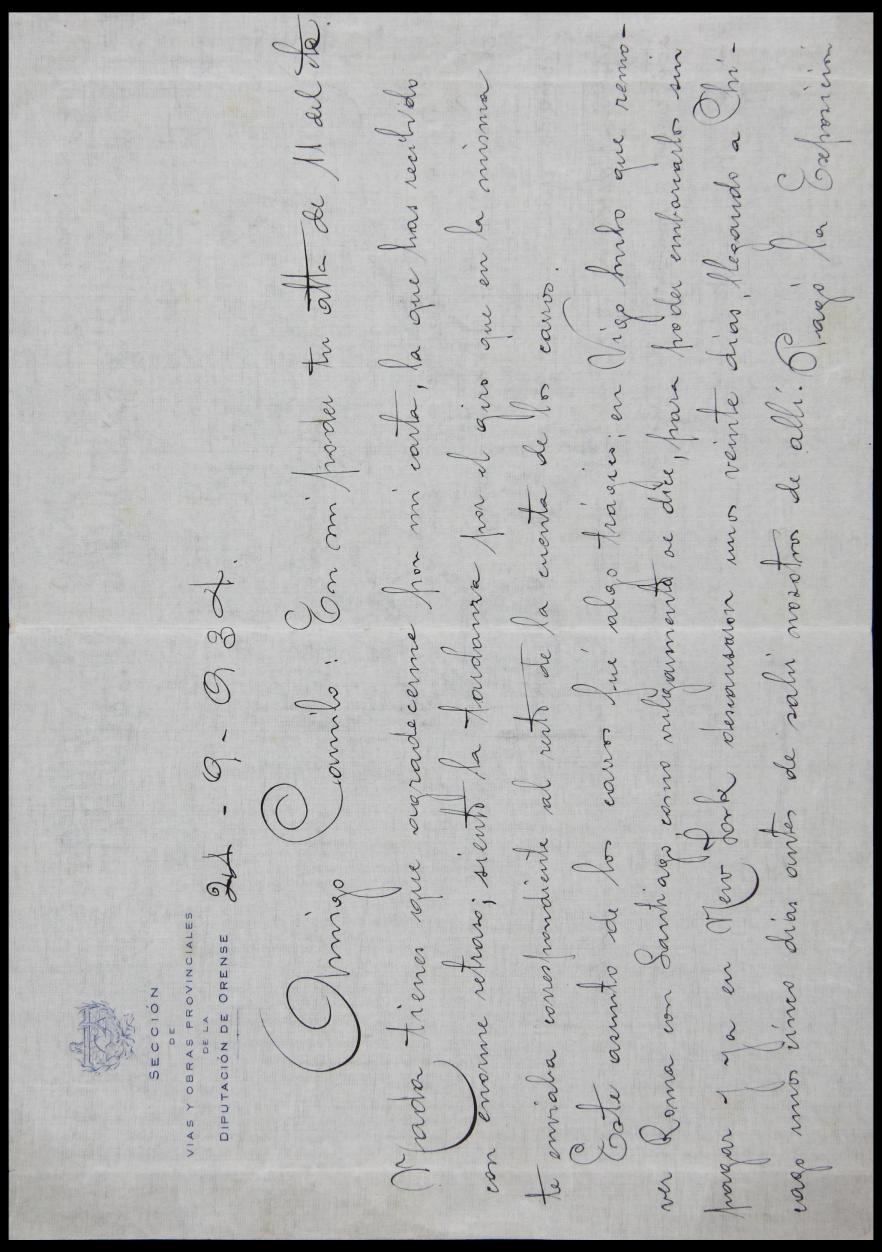 SECCIÓN
DE
VIAS Y OBRAS PROVINCIALES
DE LA
DIPUTACIÓN DE ORENSE
24 - 9 - 934.
Amigo Camilo: En mi poder tu atta de 11 del
Nada tienes que agradecerme por mi carta, la que has recibido
con enorme retraso; siento la tardanza por el giro que en la misma
te enviaba correspondiente al resto de la cuenta de los carros.
Este asunto de los carros fué algo trágico; en Vigo hubo que remo-
ver Roma con Santiago como vulgarmente se dice, para poder embarcarlos sin
pagar y ya en New York descansaron unos veinte días, llegando a Chi-
cago unos cinco días antes de salir nosotros de allí. Pagó la Exposición